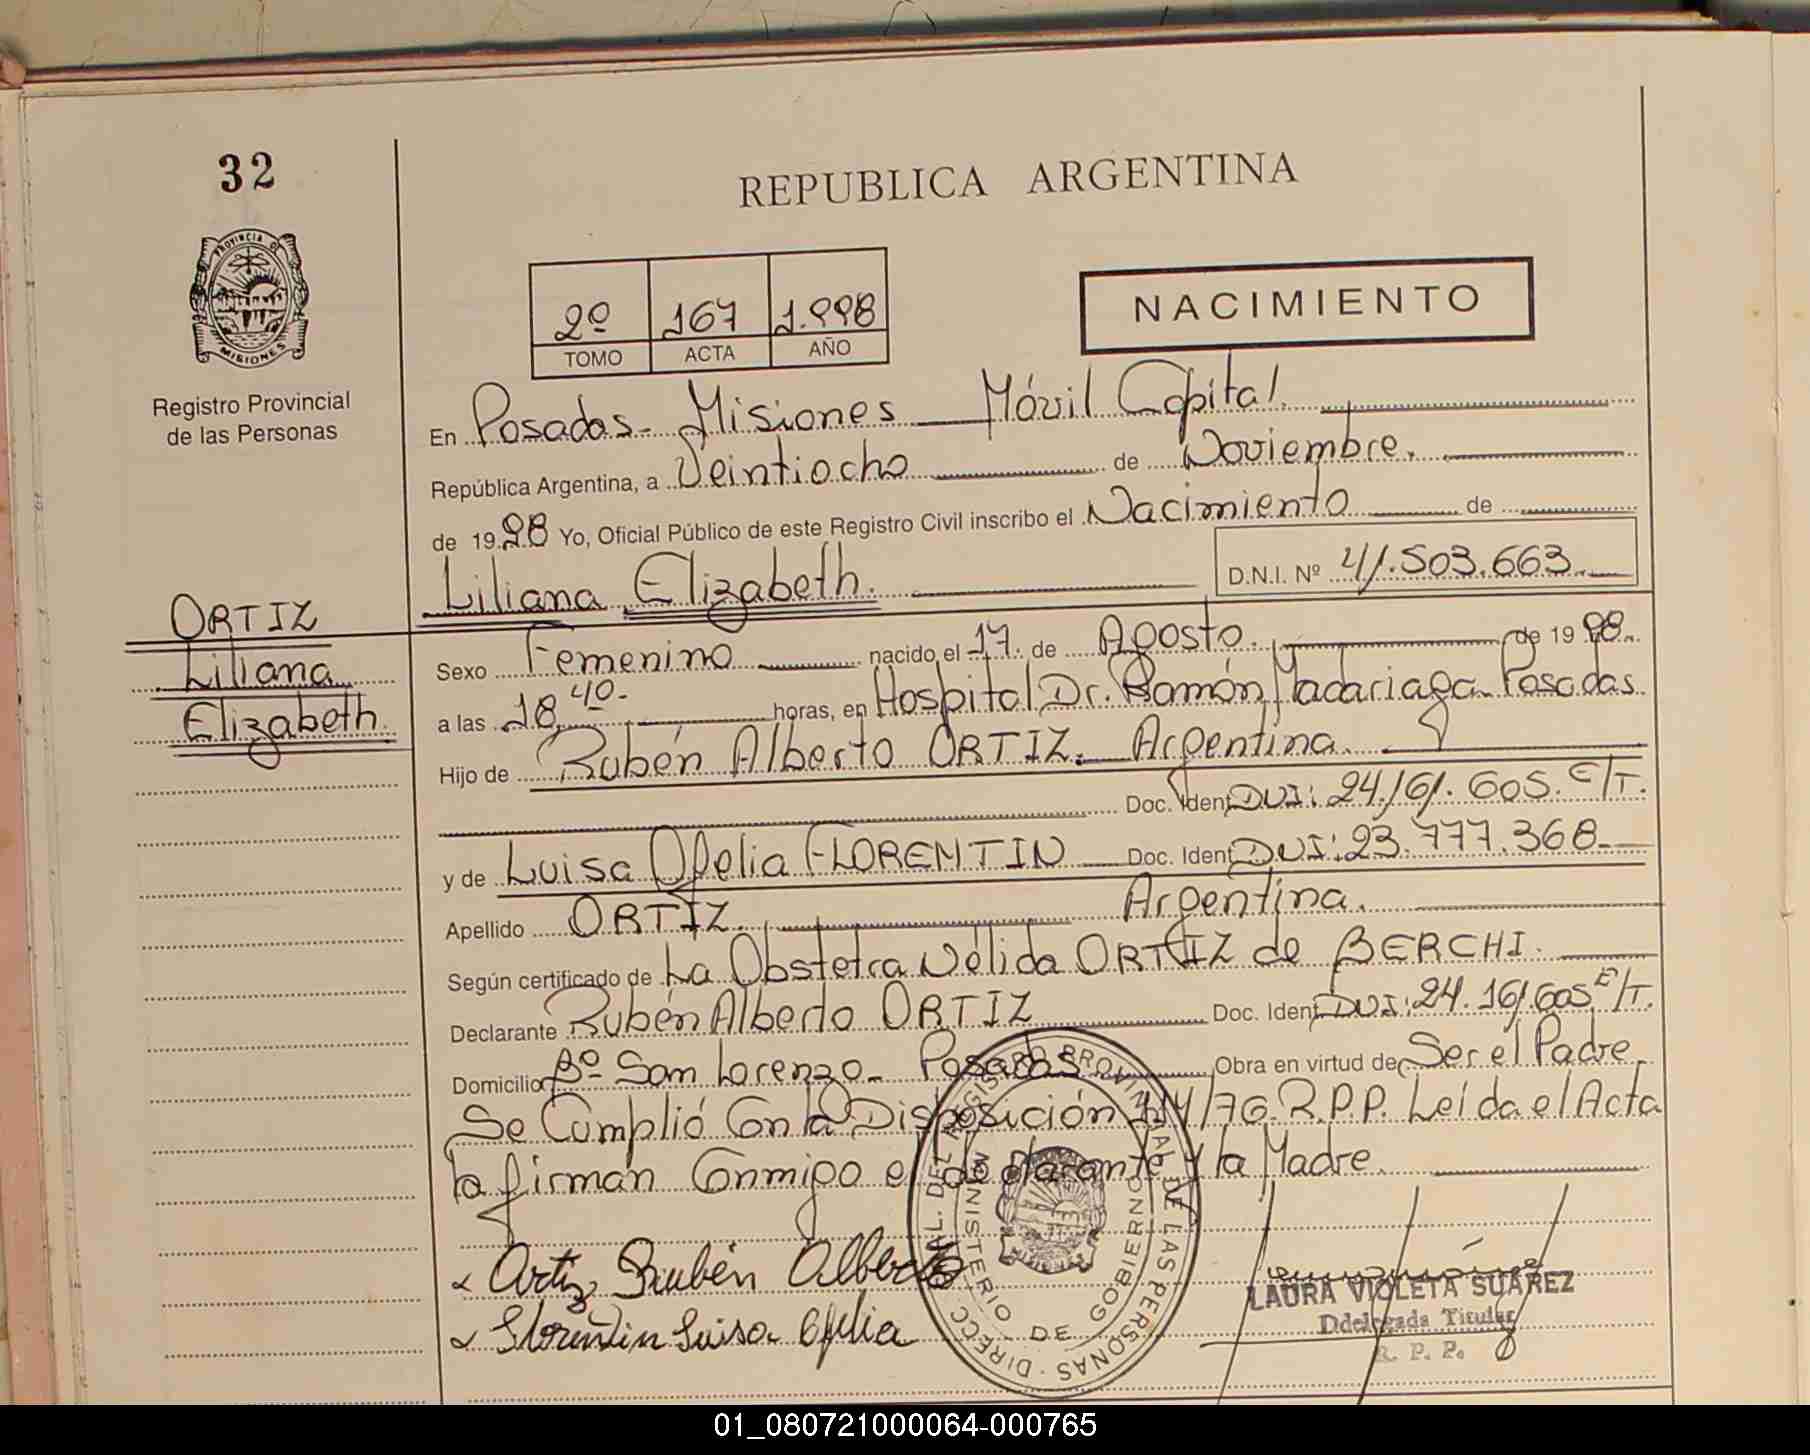 32
REPUBLICA ARGENTINA
PROVINCIA DE
MISIONES
Registro Provincial
de las Personas
2º 167 1.998
TOMO ACTA AÑO
NACIMIENTO
En Posadas - Misiones Móvil Capital.
República Argentina, a Veintiocho de Noviembre.
de 1998 Yo, Oficial Público de este Registro Civil inscribo el Nacimiento de
Liliana Elizabeth. D.N.I. Nº 41.503.663.
ORTIZ
Liliana
Elizabeth
Sexo Femenino nacido el 17. de Agosto. de 1998.
a las 18,40- horas, en Hospital Dr. Ramón Madariaga - Posadas
Hijo de Rubén Alberto ORTIZ. Argentina.
Doc. Ident DNI: 24.161.605. E/T.
y de Luisa Ofelia FLORENTIN Doc. Ident DNI: 23.777.368-
Apellido ORTIZ. Argentina.
Según certificado de La Obstetra Nélida ORTIZ de BERCHI.
Declarante Rubén Alberto ORTIZ Doc. Ident DNI: 24.161.605 E/T.
Domicilio Bº San Lorenzo - Posadas Obra en virtud de Ser el Padre.
Se Cumplió Con la Disposición /76. R.P.P. Leída el Acta
la firman Conmigo el declarante y la Madre.
Ortiz Rubén Alberto
Florentin Luisa Ofelia
DIRECC. GRAL. DEL REGISTRO PROVINCIAL DE LAS PERSONAS
MINISTERIO DE GOBIERNO
LAURA VIOLETA SUAREZ
Ddelegada Titular
R. P. P.
01_080721000064-000765